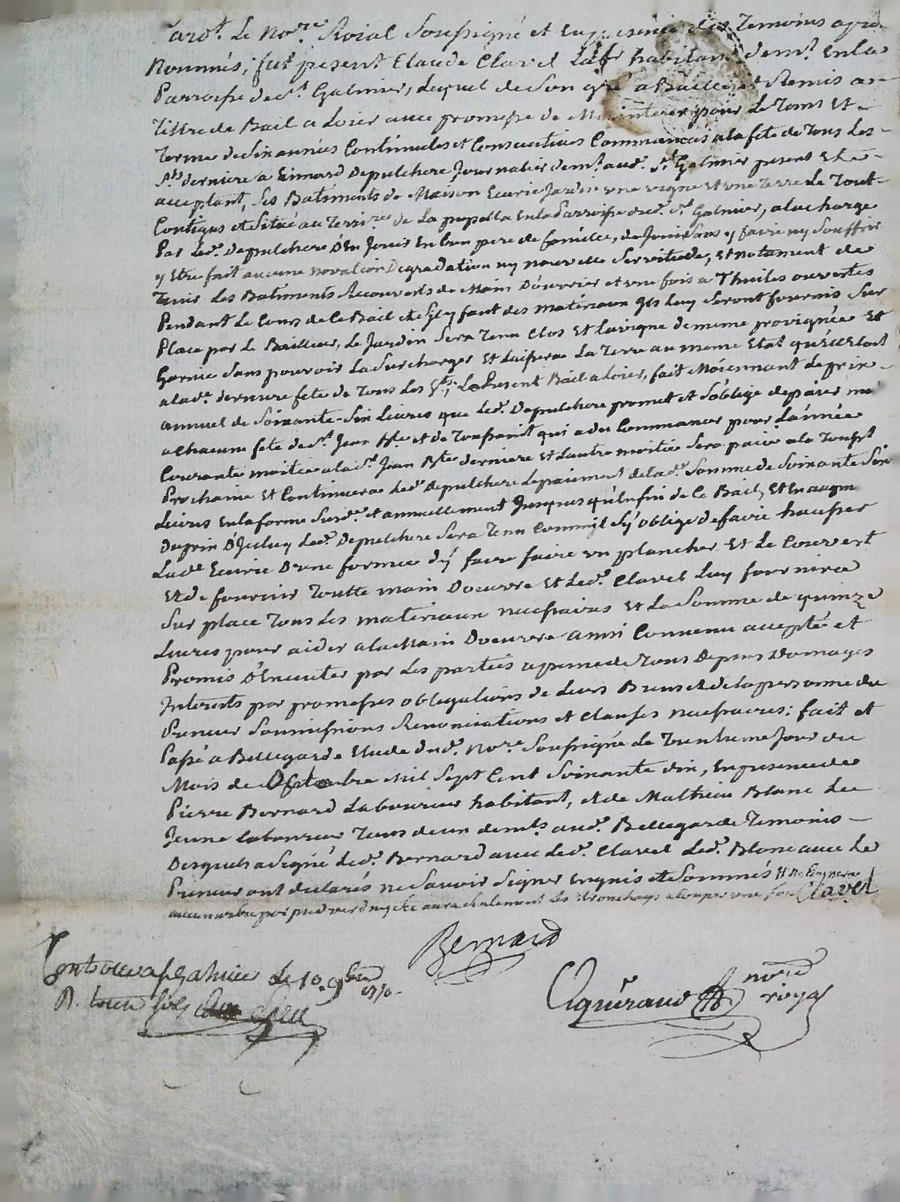 Pardt. Le Nore. Roial Soussigné et En presence des Temoins apres
Nommés, fut present Claude Clavel Labr. habitant demt. En la
Parroisse de St. Galmier, Lequel de Son gré a Baillé et Remis a
Tittre de Bail a Loier avec promesse de Maintenir pour Le Tems Et
Terme de Six années Continuelles et Consecutives Commencés a la fete de Tous Les
Sts. derniere a Eimard Depulchere Journalier demt. aud. St. Galmier present Et
acceptant, Ses Batiments de Maison Ecurie Jardin une vigne et une Terre Le Tout
Contigus et Situé au Terrire. de La En la Parroisse dud. St. Galmier, a la charge
Par Led. Depulchere D'En Jouir En bon pere de famille, de Sans y faire ny Souffrir
y Etre fait aucune Novation Degradation ny nouvelle Servitude, Et notament de
Tenir Les Batiments Recouverts de Main D'ouvrier et une fois a Thuiles ouvertes
Pendant Le Cours de Ce Bail et S'il y faut des matériaux ils Luy Seront fournis Sur
Place par Le Bailleur, Le Jardin Sera Tenu Clos Et La vigne de meme provignée Et
Garnie Sans pouvoir La Surcharger Et Laissera La Terre au meme Etat qu'elle Etoit
a lad. derniere fete de Tous Les Sts; Le Present Bail a Loier, fait Moiennant Le prix
annuel de Soixante-Six Livres que Led. Depulchere promet et S'oblige de paier
a chacune fete de St. Jean Bte. et de Toussaint qui a du Commancer pour L'année
Courante moitié a la St. Jean Bte. derniere et L'autre moitié Sera paiée a la Toust.
Prochaine Et Continuera Led. Depulchere Le paiement de lad. Somme de Soixante Six
Livres En la forme Susd. et annuellement Jusques qu'En fin de Ce Bail, Et En augm
Du prix D'Iceluy Led. Depulchere Sera Tenu Comme il S'y oblige de faire hausser
Lad. Ecurie D'une formée d'y faire faire un plancher Et Le Couvert
Et de fournir Toutte main Doeuvre Et Led. Clavel Luy fournira
Sur place Tous Les matériaux necessaires Et La Somme de quinze
Livres pour aider a la Main Doeuvre ainsi Convenu accepté et
Promis D'Executer par Les parties a peine de Tous Depens Domages
Interests par promesses obligations de Leurs Biens et de la personne du
Preneur Soumissions Renonciations et Clauses necessaires; fait et
Passé a Bellegarde Etude dud. Nore. Soussigné Le Trentieme Jour du
Mois de Mil Sept Cent Soixante dix, En presence de
Pierre Bernard Laboureur habitant, et de Mathieu Blanc Le
Jeune Laboureur Tous deux demts. aud. Bellegarde Temoins
Desquels a Signé Led. Bernard avec Led. Clavel Led. Blanc avec Le
Preneur ont declarés ne Savoir Signer Enquis et Sommés
aucun arbre par pied verd ny Sec aura Seulement Les a couper une fois Clavel
Bernard
Controllé a St. Galmier Le 10 9bre 1770.
R. treize Sols
Nore.
royal